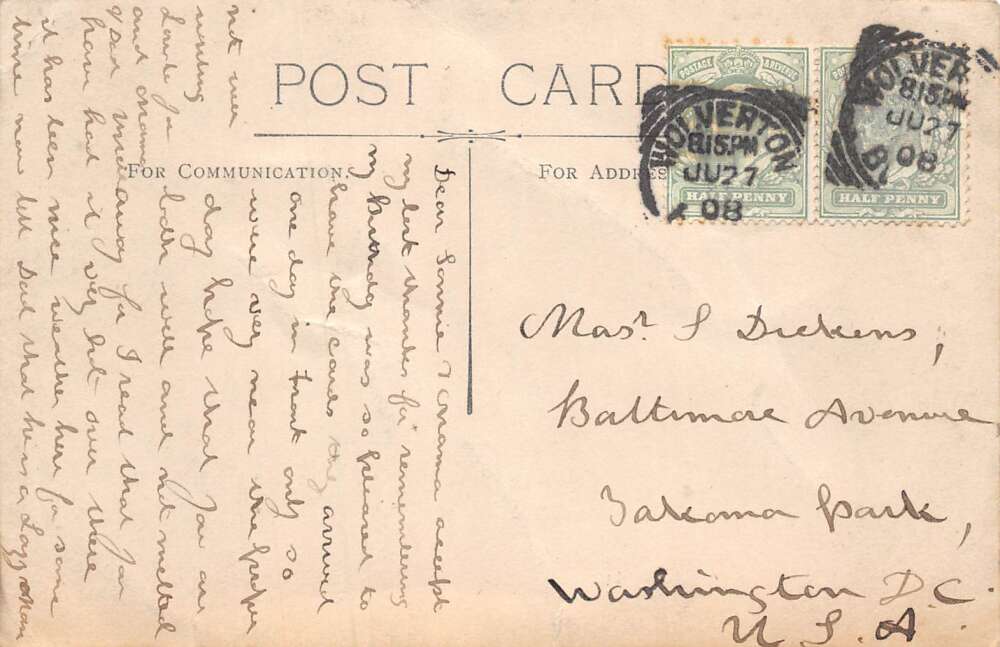 POST CARD
FOR COMMUNICATION.
FOR ADDRES
POSTAGE REVENUE
HALF PENNY
HALF PENNY
WOLVERTON
8.15.PM
JU 27
08
WOLVER
8.15.PM
JU 27
08
B
Dear Sonnie & Mama accept
my best thanks for remembering
my Birthday was so pleased to
have the cards they arrived
one day in front only so
were very near the proper
day hope that you are
both well and not melted
away for I read that you
have had it very hot over there
it has been nice weather here for some
time now tell Dad that he is a Lazy man
not ever
writing
Love to
and Mama
& Dad
Mast. S Dickens,
Baltimore Avenue
Takoma Park,
Washington D.C.
U.S.A.